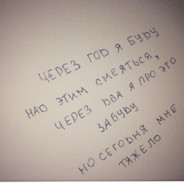 ЧЕРЕЗ ГОД Я БУДУ
НАД ЭТИМ СМЕЯТЬСЯ,
ЧЕРЕЗ ДВА Я ПРО ЭТО
ЗАБУДУ
НО СЕГОДНЯ МНЕ
ТЯЖЕЛО